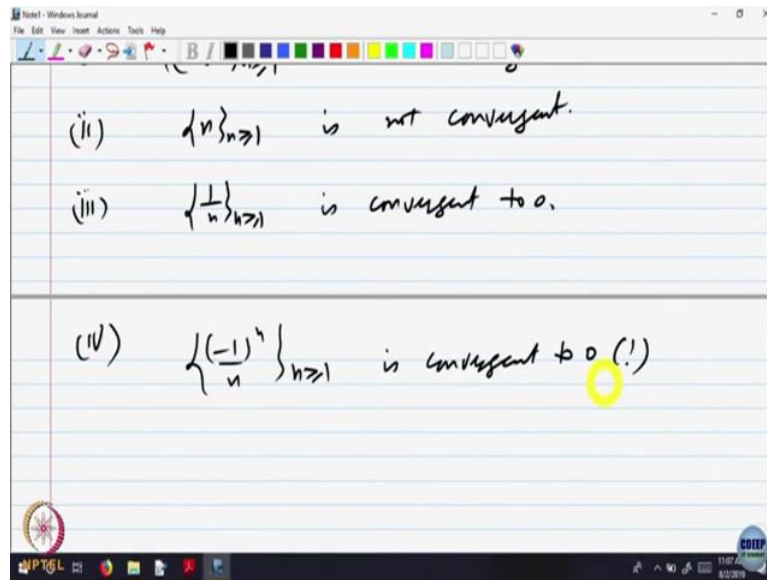 Note1 - Windows Journal
File Edit View Insert Actions Tools Help
B I
(ii) {n}n≥1 is not convergent.
(iii) {1/n}n≥1 is convergent to 0.
(iv) {(-1)^n/n}n≥1 is convergent to 0 (!)
NPTEL
CDEEP
11:07
8/2/2019